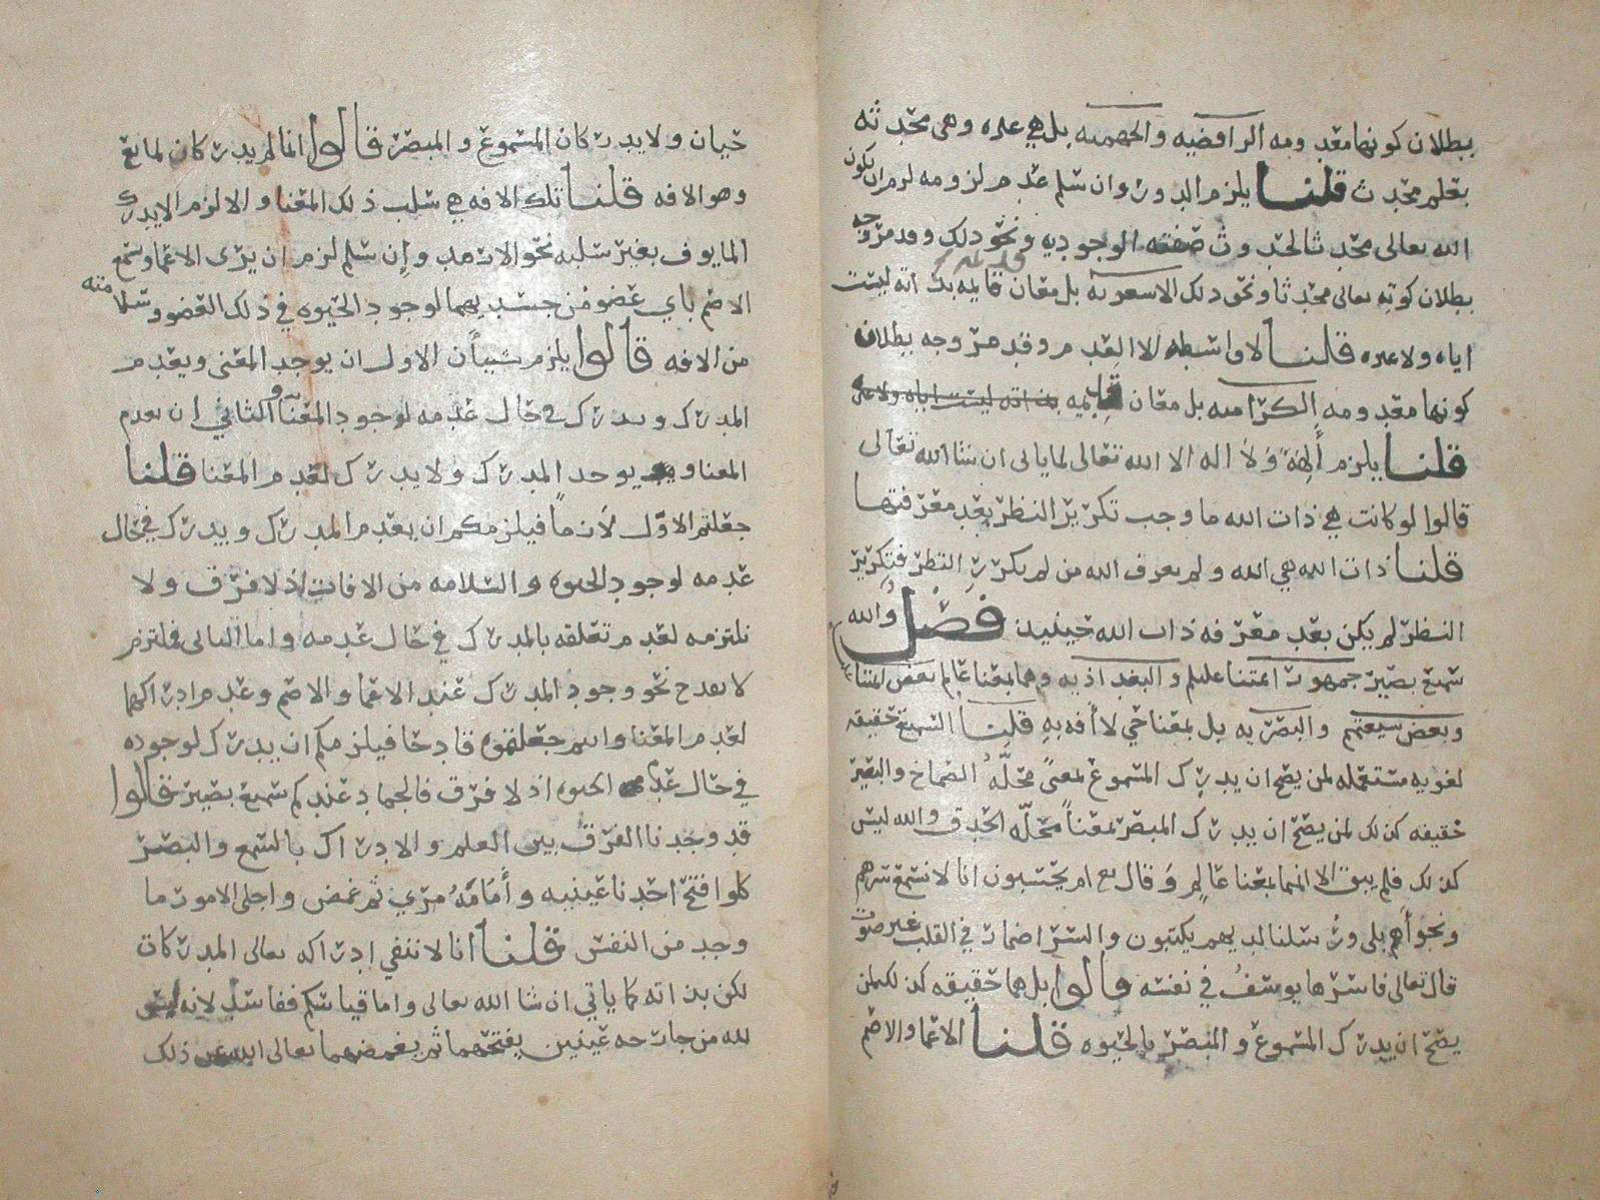 ببطلان كونها معدومه الرافضيه والجهميه بل هي غيره وهي محدثه
بعلم محدث قلنا يلزم الدور وان سلم عدم لزومه لزم ان يكون
الله تعالى محدثا لحدوث صفته الوجوديه ونحو ذلك وقد مر وجه
بطلان كونه تعالى محدثا ونحو ذلك الاشعريه بل معان قايمه بذاته ليست
اياه ولا غيره قلنا لا واسطه الا العدم وقد مر وجه بطلان
كونها معدومه الكراميه بل معان قديمه
قلنا يلزم ألهة ولا اله الا الله تعالى لما ياتي ان شا الله تعالى
قالوا لو كانت هي ذات الله ما وجب تكرير النظر بعد معرفتها
قلنا ذات الله هي الله ولم يعرف الله من لم يكرر النظر فتكرير
النظر لم يكن بعد معرفه ذات الله حينيذ فصل والله
سميع بصير جمهور ائمتنا عليلم والبغداذيه وهما بمعنا عالم بعض ائمتنا
وبعض شيعتهم والبصريه بل بمعنا حي لا أفه به قلنا السميع حقيقه
لغويه مستعمله لمن يصح ان يدرك المسموع لمعنى محله الصماخ والبصير
حقيقه كذلك لمن يصح ان يدرك المبصر لمعناً محله الحدق والله ليس
كذلك فلم يبق الا انهما بمعنا عالم وقال تع ام يحسبون انا لا نسمع سرهم
ونجواهم بلى ورسلنا لديهم يكتبون والسر اضمار في القلب غير صوت
قال تعالى فاسرها يوسف في نفسه قالوا بل هما حقيقه كذلك لمن
يصح ان يدرك المسموع والمبصر بالحيوه قلنا الاعما والاصم
حيان ولا يدركان المسموع والمبصر قالوا انما لم يدركان لمانع
وهو الافه قلنا تلك الافه هي سلب ذلك المعنا والا لزم الا يدرك
المايوف بغير سلبه نحو الارمد وإن سلم لزم ان يرى الاعما ويسمع
الاصم باي عضو من جسديهما لوجود الحيوه في ذلك العضو وسلامته
من الافه قالوا يلزم شيأن الاول ان يوجد المعنى ويعدم
المدرك ويدرك في حال عدمه لوجود المعنا والثاني ان يعدم
المعنا ويوجد المدرك ولا يدرك لعدم المعنا قلنا
جعلتم الاول لازماً فيلزمكم ان يعدم المدرك ويدرك في حال
عدمه لوجود الحيوه والسلامه من الافات اذ لا فرق ولا
نلتزمه لعدم تعلقه بالمدرك في حال عدمه واما الثاني فملتزم
لا يقدح نحو وجود المدرك عند الاعما والاصم وعدم ادراكهما
لعدم المعنا وانتم جعلتموه قادحا فيلزمكم ان يدرك لوجوده
في حال عدم الحيوه اذ لا فرق فالجماد عندكم سميع بصير قالوا
قد وجدنا الفرق بين العلم والادراك بالسمع والبصر
كلو افتح احدنا عينيه وأمامه مري ثم غمض واجلى الامور ما
وجد من النفس قلنا انا لا ننفي إدراكه تعالى المدركات
لكن بذاته كما ياتي ان شا الله تعالى واما قياسكم ففاسد لانه ليس
لله من جارحه عينين يفتحهما ثم يغمضهما تعالى الله عن ذلك